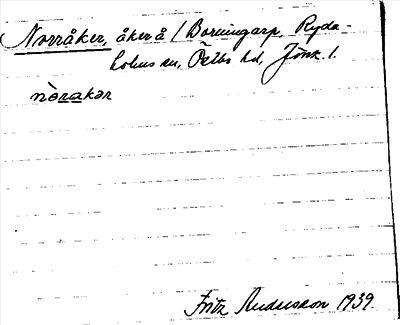 Norråker, åker å / Borningarp, Ryda-
holms sn, Östbo hd, Jönk. l.
nòrakər
Fritz Andersson 1939.